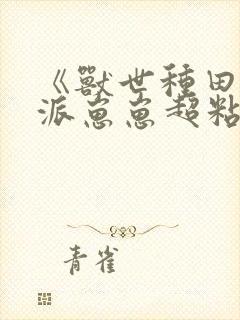 《獸世種田
派崽崽超粘
青雀